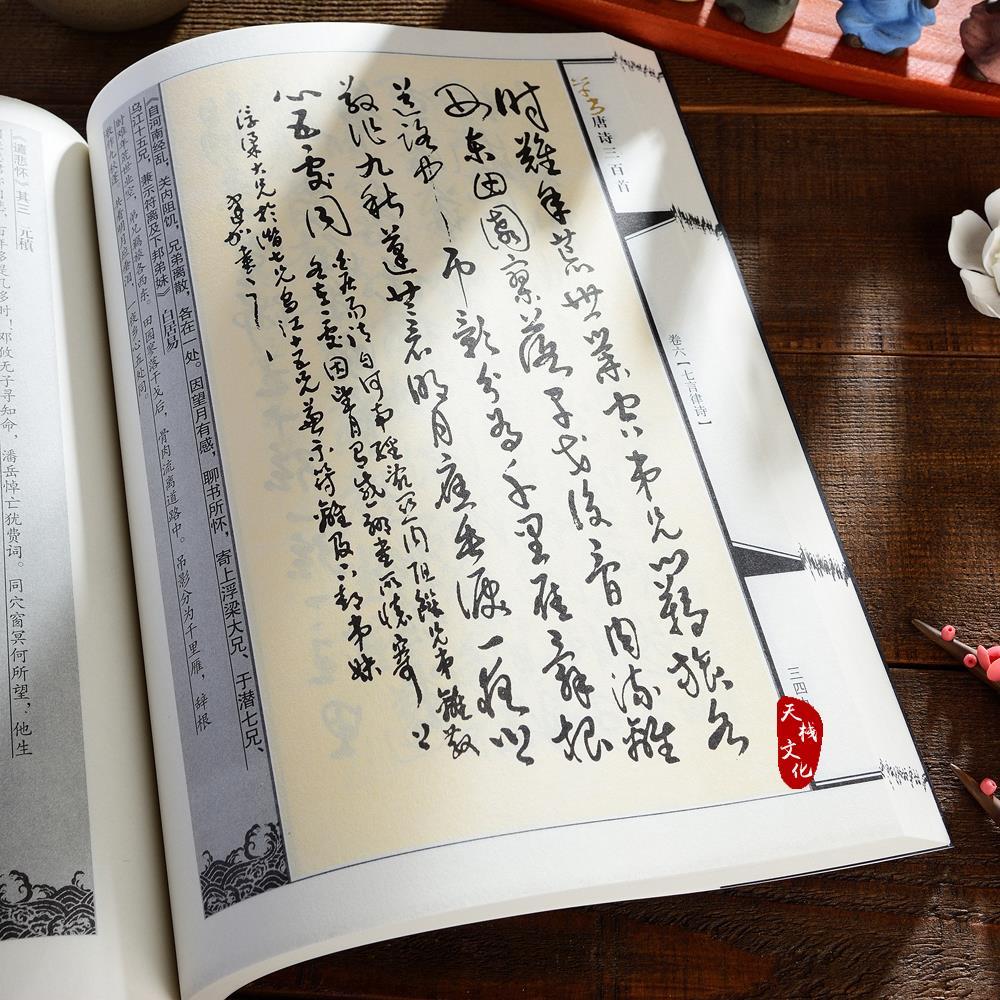 唐诗三百首
卷六【七言律诗】
三四
天栈文化
时难年荒世业空弟兄羁旅各
西东田园寥落干戈后骨肉流离
道路中吊影分为千里雁辞根
散作九秋蓬共看明月应垂泪一夜乡
心五处同
自河南经乱关内阻饥兄弟离散
各在一处因望月有感聊书所怀寄上
浮梁大兄於潜七兄乌江十五兄兼示符离及下邽弟妹
《自河南经乱，关内阻饥，兄弟离散，各在一处。因望月有感，聊书所怀，寄上浮梁大兄、于潜七兄、
乌江十五兄，兼示符离及下邦弟妹》 白居易
时难年荒世业空，弟兄羁旅各西东。田园寥落干戈后，骨肉流离道路中。吊影分为千里雁，辞根
散作九秋蓬。共看明月应垂泪，一夜乡心五处同。
《遣悲怀》其三 元稹
几多时！邓攸无子寻知命，潘岳悼亡犹费词。同穴窗冥何所望，他生